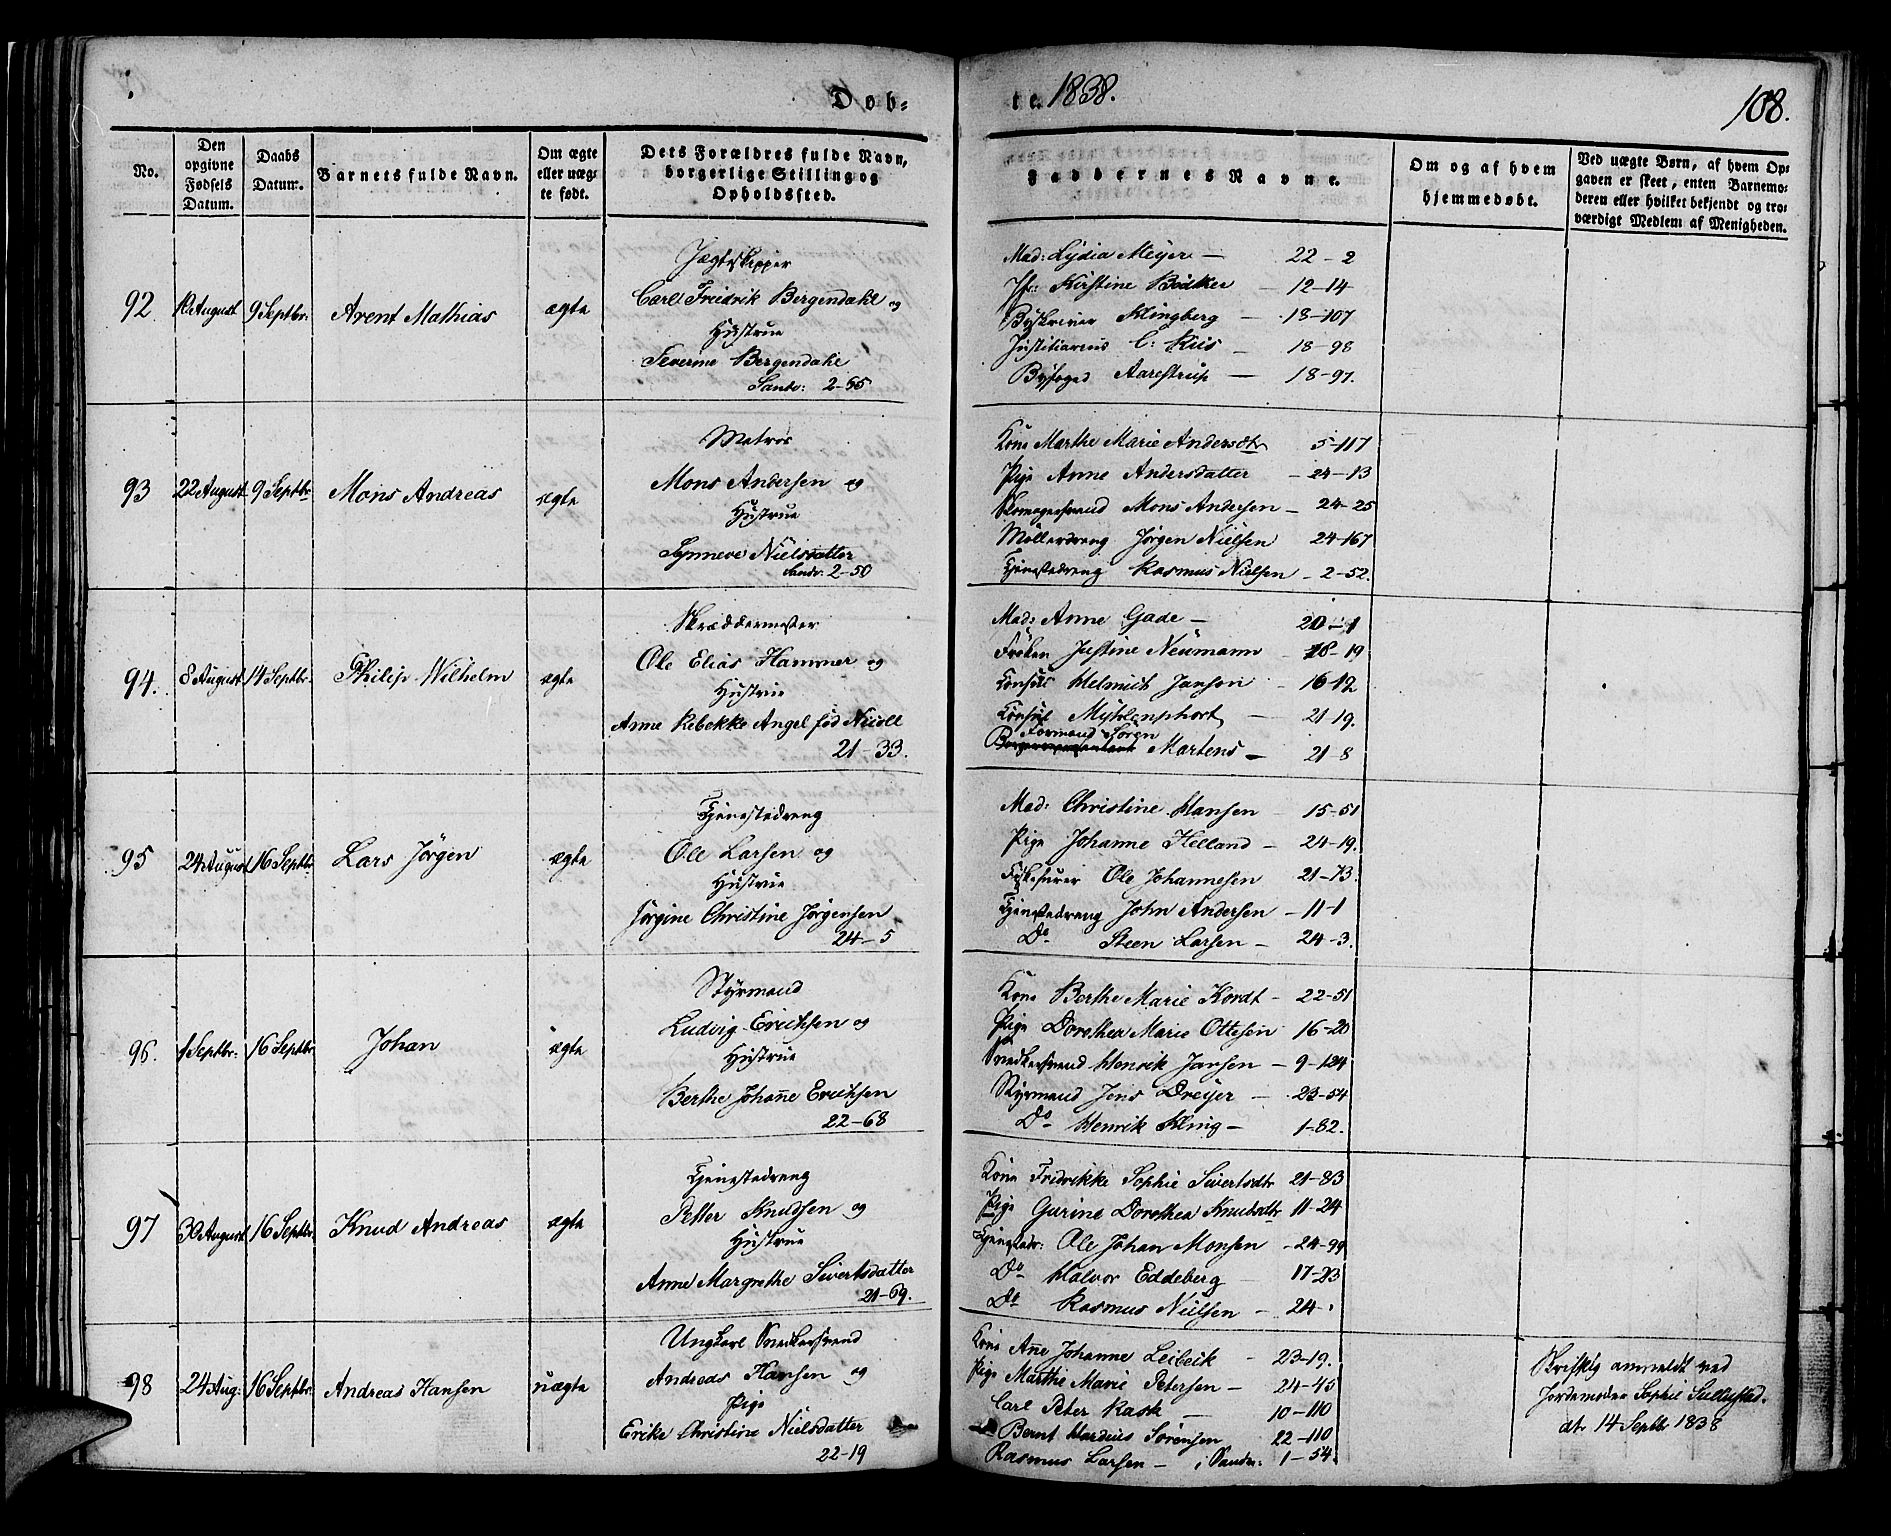 Døb-
te. 1838.
108.
No.
Den opgivne Fødsels Datum.
Daabs Datum.
Barnets fulde Navn.
Om ægte eller uægte født.
Dets Forældres fulde Navn, borgerlige Stilling og Opholdssted.
Faddernes Navne.
Om og af hvem hjemmedøbt.
Ved uægte Børn, af hvem Opgaven er skeet, enten Barnemoderen eller hvilket bekjendt og troværdigt Medlem af Menigheden.
92 10 August 9 Septbr: Arent Mathias ægte
Jægteskipper
Carl Fredrik Bergendahl og
Hustrue
Severine Bergendahl
Sandv: 2-65
Mad: Lydia Meyer — 22-2
Jfr: Kirstine Bödtker — 12-14
Byskriver Klingberg — 18-107
Justitiarius C: Kiis — 18-98
Byfoged Aarestrup — 18-97.
93 22 August 9 Septbr Mons Andreas ægte
Matros
Mons Andersen og
Hustrue
Synneve Nielsdatter
Sandv: 2-50
Kone Marthe Marie Andersdtr 5-117
Pige Anne Andersdatter — 24-13
Skomagersvend Mons Andersen — 24-25
Møllerdreng Jørgen Nielsen 24-167
Tjenestedreng Rasmus Nielsen — 2-52.
94. 8 August 14 Septbr. Philip Wilhelm ægte
Skræddermester
Ole Elias Hammer og
Hustrue
Anne Rebekke Angel fød Nicoll
21-33.
Mad: Anne Gade — 20-1
Frøken Justine Neumann — 18-19
Konsul Helmich Janson — 16-12
Konsul Myhlenphort — 21-19.
Formand Søren
Martens — 21-8
95 24 August 16 Septbr. Lars Jörgen ægte
Tjenestedreng
Ole Larsen og
Hustrue
Jørgine Christine Jørgensen
24-5
Mad: Christine Hansen — 15-51
Pige Johanne Helland — 24-19.
Fiskefurer Ole Johannesen 21-73.
Tjenestedreng John Andersen — 11-1
Do Steen Larsen — 24-3.
96. 1 Septbr: 16 Septbr Johan ægte
Styrmand
Ludvig Erichsen og
Hustrue
Berthe Johañe Erichsen
22-68
Kone Berthe Marie Kordt — 22-51
Pige Dorothea Marie Ottesen 16-20
Snedkersvend Henrik Jansen — 9-124
Styrmand Jens Dreyer — 23-54
Do Henrik Kling — 1-82.
97 30 August 16 Septbr. Knud Andreas ægte
Tjenestedreng
Petter Knudsen og
Hustrue
Anne Margrethe Sivertsdatter
21-69.
Kone Fredrikke Sophie Sivertsdtr 21-83
Pige Gurine Dorothea Knudsdtr 11-24
Tjenestedr: Ole Johan Monsen — 24-99
Do Halvor Eddeberg 17-23
Do Rasmus Nielsen — 24-
98 24 Aug: 16 Septbr. Andreas Hansen uægte
Ungkarl Snedkersvend
Andreas Hansen og
Pige
Erike Christine Nielsdatter
22-19
Kone Añe Johanne Leibeik — 23-19.
Pige Marthe Marie Petersen — 24-45
Carl Peter Rask — 10-110
Bernt Hardius Sørensen 22-110
Rasmus Larsen — i Sandv: 1-54.
Skriftlig anmeldt ved
Jordemoder Sophie
dt. 14 Septbr 1838